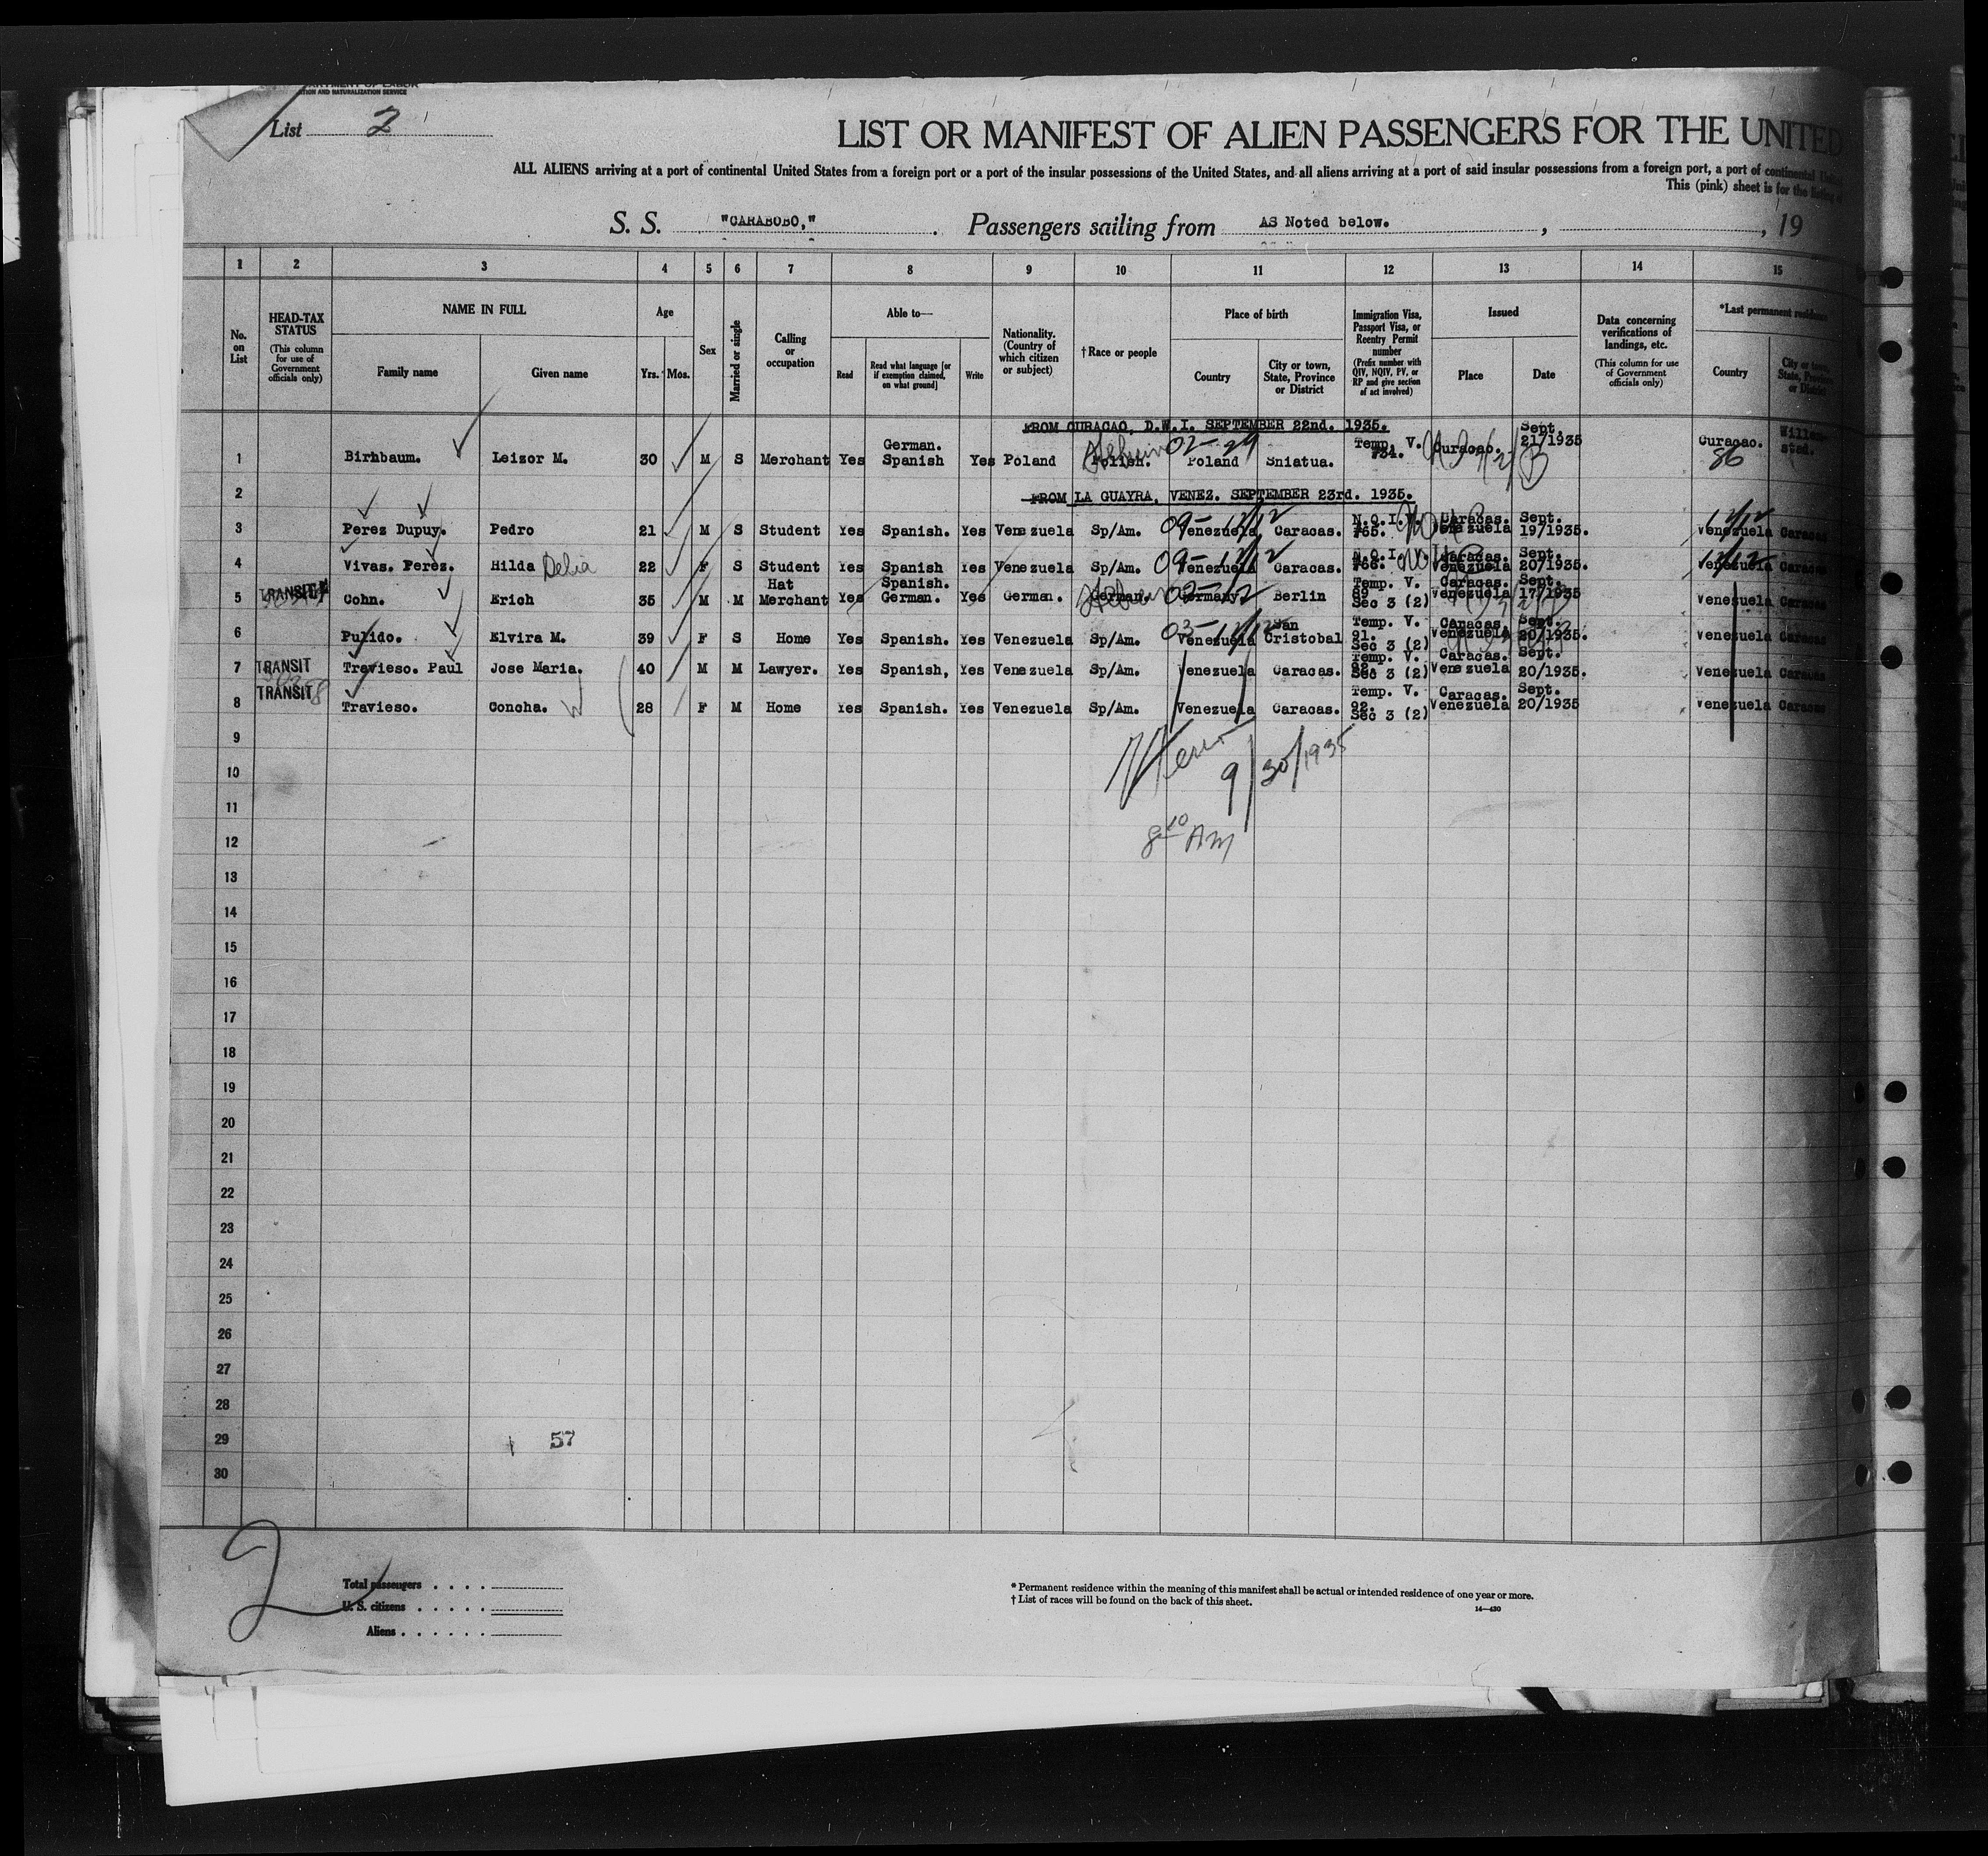 DEPARTMENT OF LABOR
ATION AND NATURALIZATION SERVICE
List 2
LIST OR MANIFEST OF ALIEN PASSENGERS FOR THE UNITED
ALL ALIENS arriving at a port of continental United States from a foreign port or a port of the insular possessions of the United States, and all aliens arriving at a port of said insular possessions from a foreign port, a port of continental
This (pink) sheet is for the listing
S. S. "CARABOBO," . Passengers sailing from AS Noted below. , , 19
1 2 3 4 5 6 7 8 9 10 11 12 13 14 15
No. on List
HEAD-TAX STATUS (This column for use of Government officials only)
NAME IN FULL
Family name Given name
Age Yrs. Mos.
Sex
Married or single
Calling or occupation
Able to—
Read Read what language [or if exemption claimed, on what ground] Write
Nationality. (Country of which citizen or subject)
† Race or people
Place of birth
Country City or town, State, Province or District
Immigration Visa, Passport Visa, or Reentry Permit number (Prefix number with QIV, NQIV, PV, or RP and give section of act involved)
Issued
Place Date
Data concerning verifications of landings, etc. (This column for use of Government officials only)
*Last permanent residence
Country City or town, State, Province or District
FROM CURACAO, D.W.I. SEPTEMBER 22nd. 1935.
1 Birnbaum. Leizor M. 30 M S Merchant Yes German. Spanish Yes Poland Polish. Hebrew 02-29 Poland Sniatua. Temp. V. 734. Curacao. Sept. 21/1935 Curacao. 86 Willemsted.
2 FROM LA GUAYRA, VENEZ. SEPTEMBER 23rd. 1935.
3 Perez Dupuy. Pedro 21 M S Student Yes Spanish. Yes Venezuela Sp/Am. 09- 12/12 Venezuela Caracas. N.Q.I.V. 765. Caracas. Venezuela Sept. 19/1935. 12/12 Venezuela Caracas
4 Vivas. Perez. Hilda Delia 22 F S Student Yes Spanish Yes Venezuela Sp/Am. 09- 12/12 Venezuela Caracas. N.Q.I.V. 766. Caracas. Venezuela Sept. 20/1935. 12/12 Venezuela Caracas
5 TRANSIT Cohn. Erich 35 M M Hat Merchant Yes Spanish. German. Yes German. German. Hebrew Germany Berlin Temp. V. 89 Sec 3 (2) Caracas. Venezuela Sept. 17/1935 Venezuela Caracas
6 Pulido. Elvira M. 39 F S Home Yes Spanish. Yes Venezuela Sp/Am. 03- 12/12 Venezuela San Cristobal Temp. V. 91. Sec 3 (2) Caracas. Venezuela Sept. 20/1935. Venezuela Caracas
7 TRANSIT Travieso. Paul Jose Maria. 40 M M Lawyer. Yes Spanish, Yes Venezuela Sp/Am. Venezuela Caracas. Temp. V. 92. Sec 3 (2) Caracas. Venezuela Sept. 20/1935. Venezuela Caracas
8 TRANSIT Travieso. Concha. 28 F M Home Yes Spanish. Yes Venezuela Sp/Am. Venezuela Caracas. Temp. V. 92. Sec 3 (2) Caracas. Venezuela Sept. 20/1935 Venezuela Caracas
9
9/30/1935
10
11
12
8 10 AM
13
14
15
16
17
18
19
20
21
22
23
24
25
26
27
28
29 57
30
2
Total passengers . . . .
U. S. citizens . . . . .
Aliens . . . . . .
* Permanent residence within the meaning of this manifest shall be actual or intended residence of one year or more.
† List of races will be found on the back of this sheet.
14—430